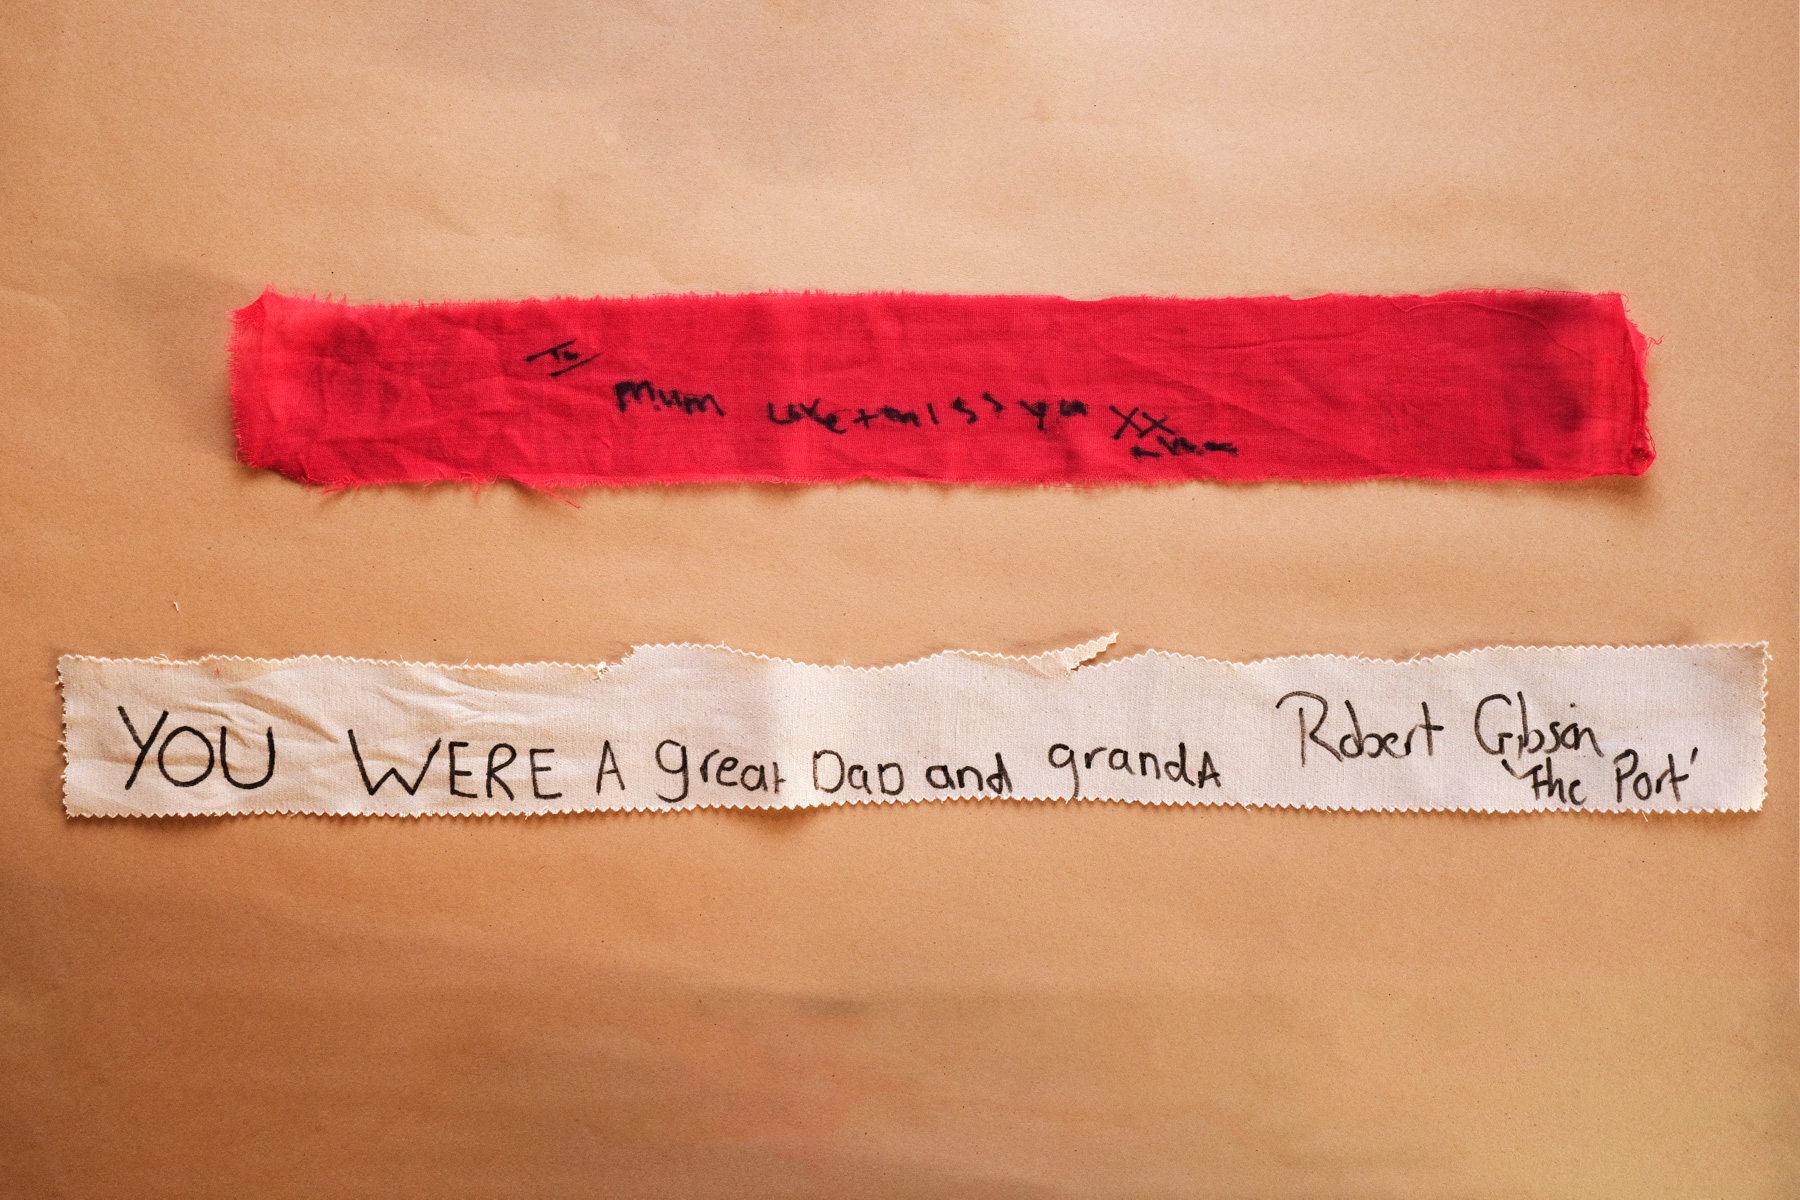 To
Mum Love + miss you xx
YOU WERE A great DaD and grandA
Robert Gibson
'The Port'